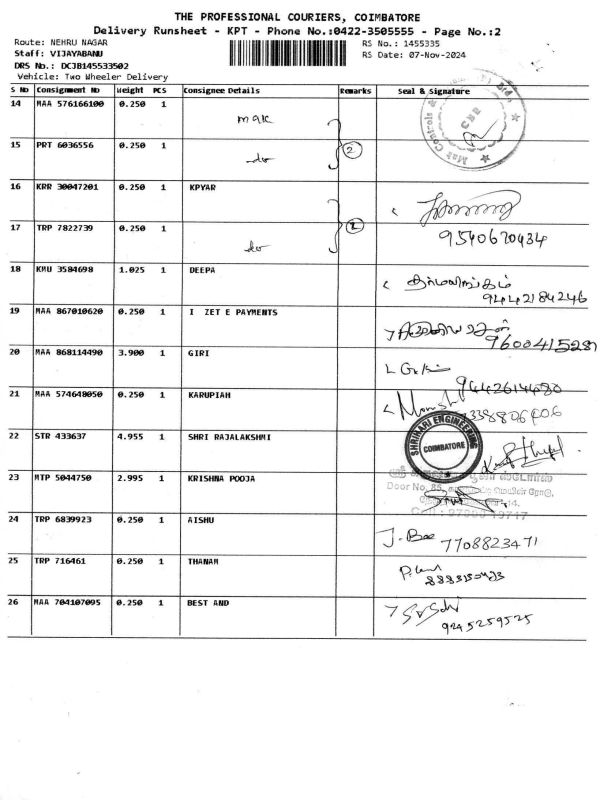 THE PROFESSIONAL COURIERS, COIMBATORE
Delivery Runsheet - KPT - Phone No.:0422-3505555 - Page No.:2
Route: NEHRU NAGAR
Staff: VIJAYABANU
DRS No.: DCJB145533502
Vehicle: Two Wheeler Delivery
RS No.: 1455335
RS Date: 07-Nov-2024
S No Consignment No Weight PCS Consignee Details Remarks Seal & Signature
14 MAA 576166100 0.250 1
15 PRT 6036556 0.250 1 do 2
16 KRR 30047201 0.250 1 KPYAR
17 TRP 7822739 0.250 1 do 2
9540670434
18 KMU 3584698 1.025 1 DEEPA
9442184246
19 MAA 867010620 0.250 1 I ZET E PAYMENTS
9600415281
20 MAA 868114490 3.900 1 GIRI
9442614480
21 MAA 574648050 0.250 1 KARUPIAH
22 STR 433637 4.955 1 SHRI RAJALAKSHMI
SHRIHARI ENGINEERING
COIMBATORE
23 MTP 5044750 2.995 1 KRISHNA POOJA
Door No. 85,
24 TRP 6839923 0.250 1 AISHU
7708823471
25 TRP 716461 0.250 1 THANAM
26 MAA 704107095 0.250 1 BEST AND
9245259525